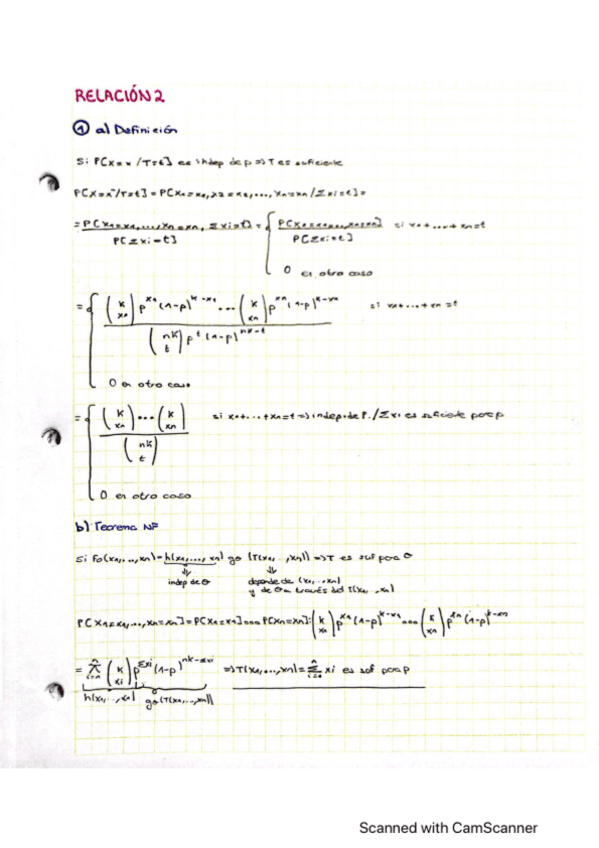 RELACIÓN 2
① a) Definición
Si P[X=x/T=t] es indep de p => T es suficiente
P[X=x/T=t] = P[X₁=x₁, X₂=x₂, ..., Xn=xn / Σxi=t] =
= P[X₁=x₁, ..., Xn=xn, Σxi=t] / P[Σxi=t] = { P[X₁=x₁, ..., Xn=xn] / P[Σxi=t] si x₁+...+xn=t
0 en otro caso
= { (k x₁) p^x₁ (1-p)^k-x₁ ... (k xn) p^xn (1-p)^k-xn / (nk t) p^t (1-p)^nk-t si x₁+...+xn=t
0 en otro caso
= { (k x₁) ... (k xn) / (nk t) si x₁+...+xn=t => indep. de P. / Σxi es suficiente para p
0 en otro caso
b) Teorema NF
Si fθ(x₁, ..., xn) = h(x₁, ..., xn) gθ (T(x₁, ..., xn)) => T es suf para θ
indep de θ depende de (x₁, ..., xn)
y de θ a través del T(x₁, ..., xn)
P[X₁=x₁, ..., Xn=xn] = P[X₁=x₁] ... P[Xn=xn] = (k x₁) p^x₁ (1-p)^k-x₁ ... (k xn) p^xn (1-p)^k-xn
= ∏ i=1 n (k xi) p^Σxi (1-p)^nk-Σxi => T(x₁, ..., xn) = Σ i=1 n xi es suf para p
h(x₁, ..., xn) gθ(T(x₁, ..., xn))
Scanned with CamScanner